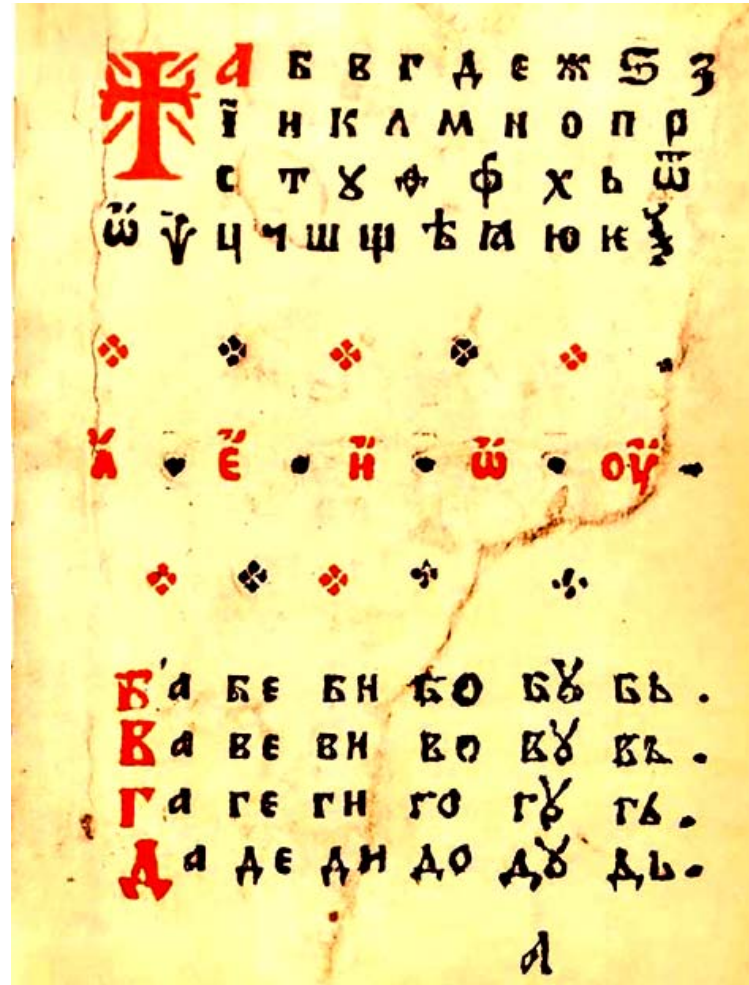 а б в г д є ж ѕ з
ї и к л м н о п р
с т ꙋ ѳ ф х ь ѿ
ѡ ѵ ц ч ш щ ѣ ꙗ ю ѥ ѯ
а • є • и • ѡ • оу •
ба бє би бо бꙋ бь .
ва вє ви во вꙋ вь .
га гє ги го гꙋ гь .
да дє ди до дꙋ дь .
а